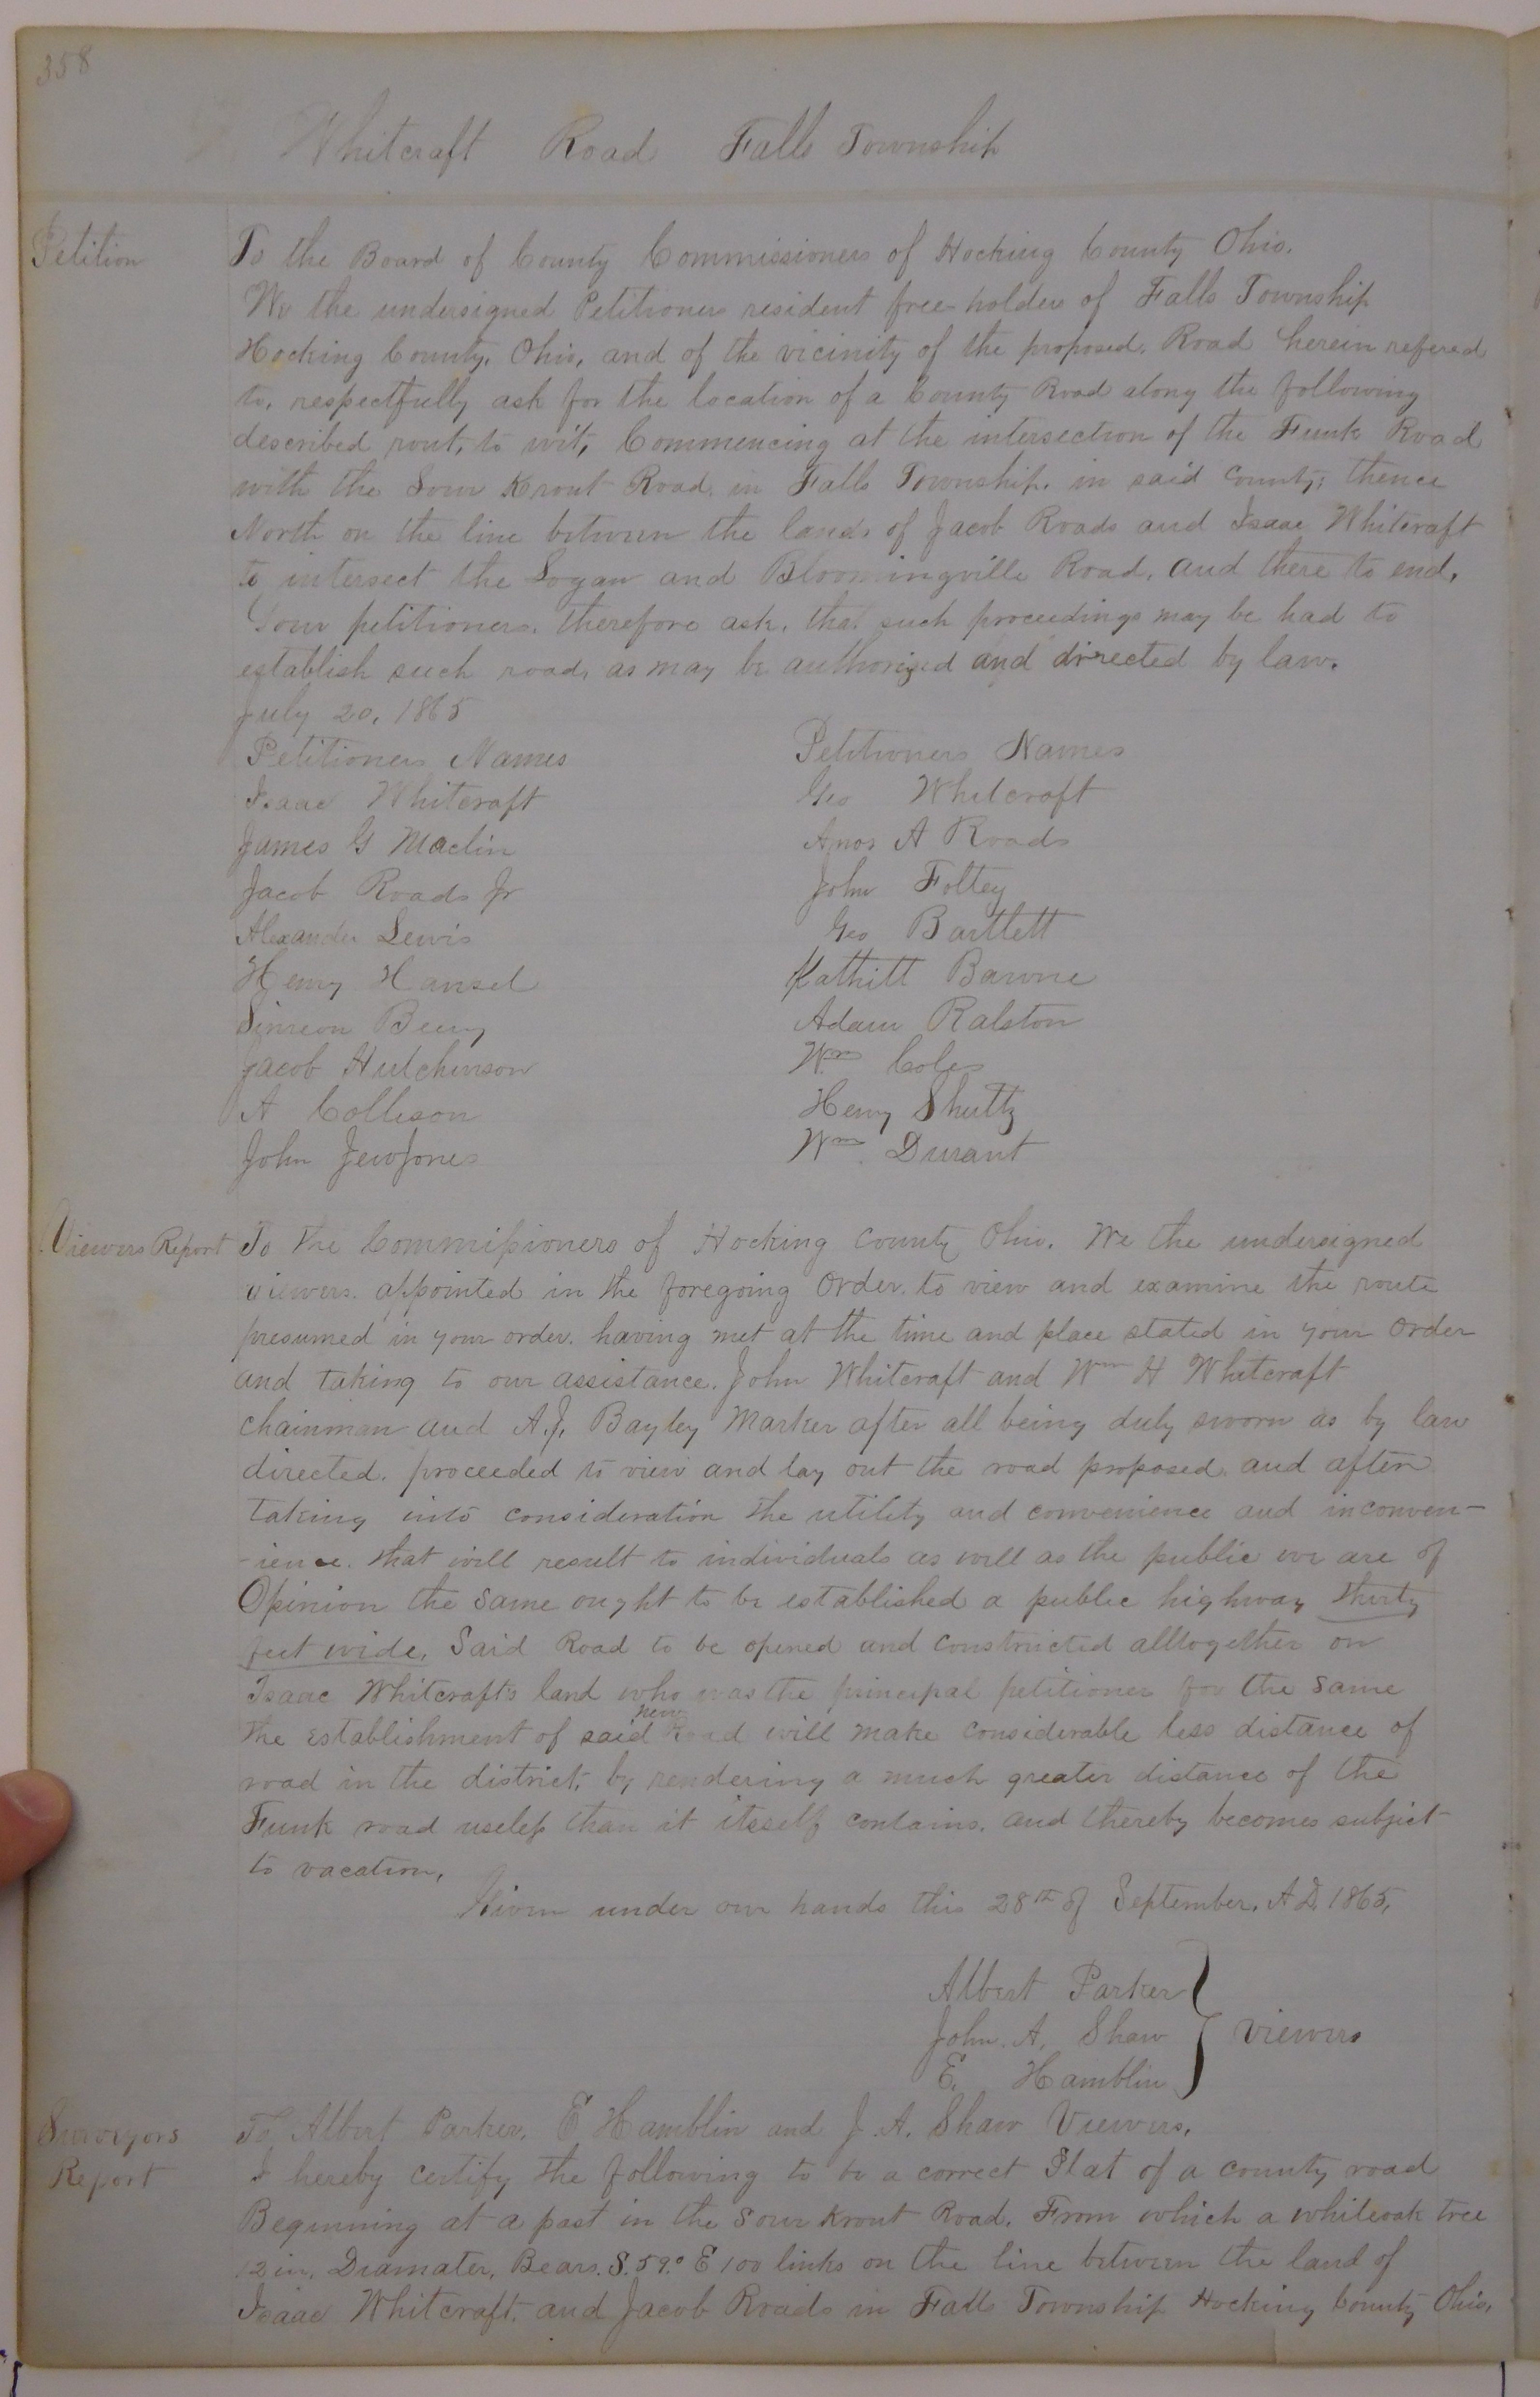 358
Whitcraft Road Falls Township
Petition
To the Board of County Commissioners of Hocking County Ohio.
We the undersigned Petitioners resident free-holders of Falls Township
Hocking County, Ohio, and of the vicinity of the proposed, Road herein refered
to, respectfully ask for the location of a County Road along the following
described rout, to wit, Commencing at the intersection of the Funk Road
with the Sour Krout Road, in Falls Township, in said County; thence
North on the line between the lands of Jacob Roads and Isaac Whitcraft
to intersect the Logan and Bloomingville Road, and there to end,
Your petitioners, therefore ask, that such proceedings may be had to
establish such road, as may be authorized and directed by law.
July 20, 1865
Petitioners Names Petitioners Names
Isaac Whitcraft Geo Whitcraft
James G Maclin Amos A Roads
Jacob Roads Jr John Foltey
Alexander Lewis Geo Bartlett
Henry Hansel Barone
Simeon Berry Adam Ralston
Jacob Hutchinson Wm Coles
A Colleson Henry Shultz
John Jones Wm Durant
Viewers Report To the Commissioners of Hocking County Ohio. We the undersigned
viewers. appointed in the foregoing Order, to view and examine the route
presumed in your order, having met at the time and place stated in your Order
and taking to our assistance, John Whitcraft and Wm H Whitcraft
Chainman and A.J. Bayley Marker after all being duly sworn as by law
directed. proceeded to view and lay out the road proposed, and after
taking into consideration the utility and convenience and inconven-
-ience. that will result to individuals as well as the public we are of
Opinion the same ought to be established a public highway thirty
feet wide, Said Road to be opened and constructed alltogether on
Isaac Whitcraft's land who was the principal petitioner for the same
The establishment of said new Road will make considerable less distance of
road in the district, by rendering a much greater distance of the
Funk road useless than it itself contains, and thereby becomes subject
to vacation,
Given under our hands this 28th of September, A.D. 1865,
Albert Parker
John. A. Shaw viewers
E. Hamblin
Surveyors Report
To Albert Parker, E Hamblin and J. A. Shaw Viewers,
I hereby certify the following to be a correct Plat of a county road
Beginning at a post in the Sour Krout Road. From which a whiteoak tree
12 in, Diamater, Bears. S. 59.° E 100 links on the line between the land of
Isaac Whitcraft, and Jacob Roads in Falls Township Hocking County Ohio,